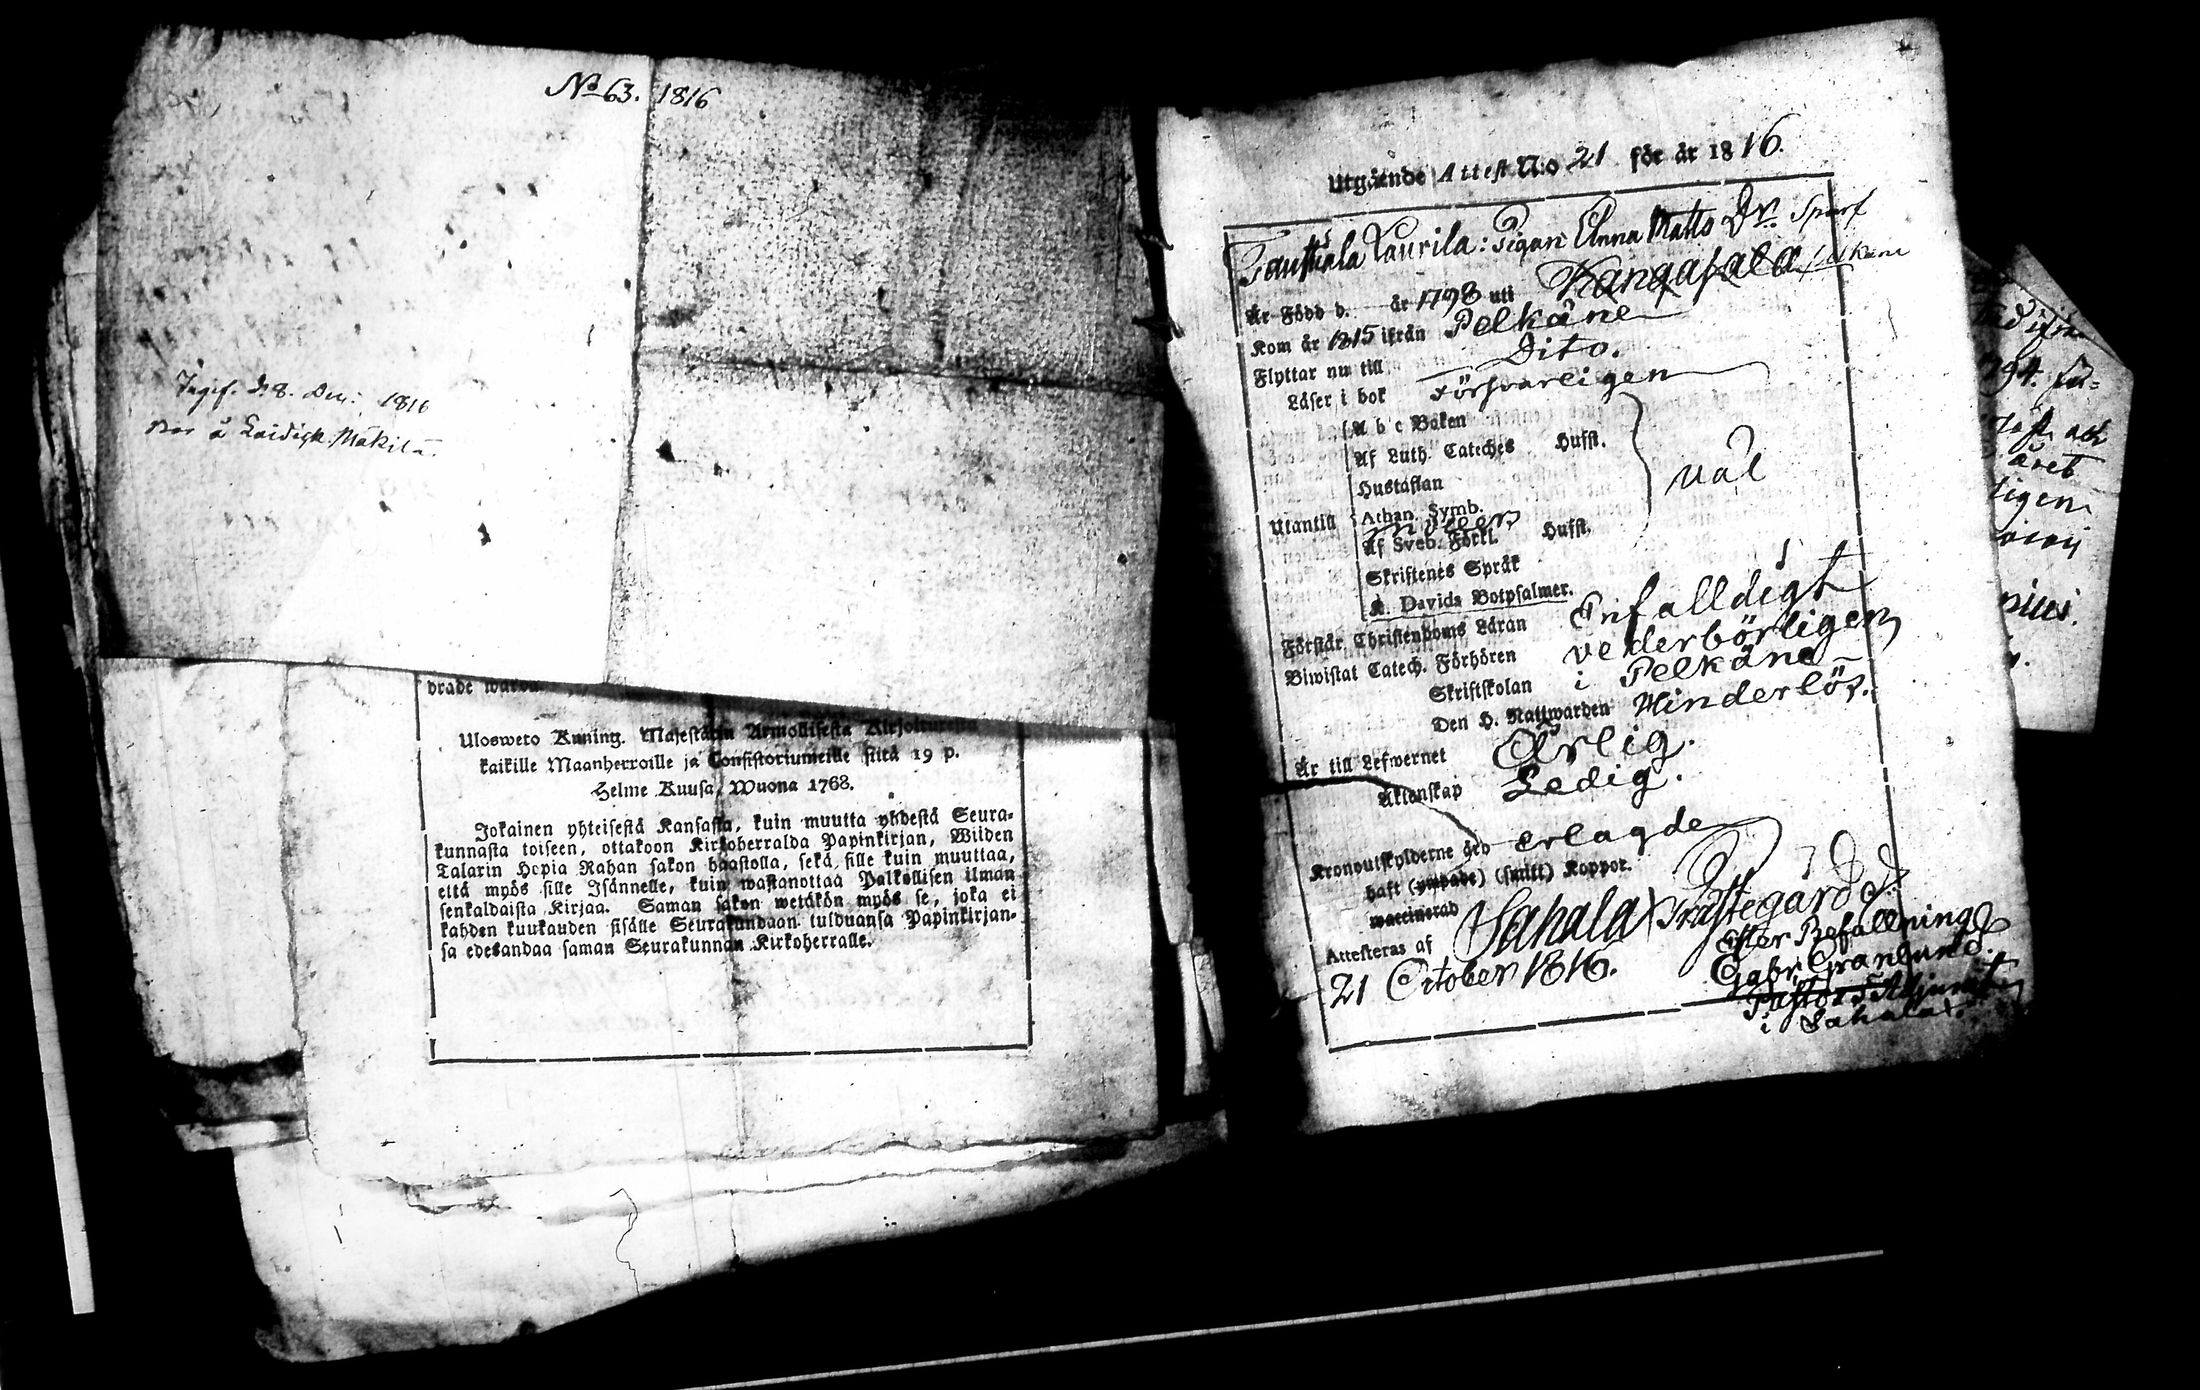 No 63. 1816
Ingif. d. 8. Dec: 1816
bor å Laidick Mäkilä
drade
Ulosweto Kuning. Majestätin Armollisesta Kirjoituxesta
kaikille Maanherroille ja Consistoriumeille siitä 19 p.
Helme Kuusa, Wuona 1768.
Jokainen yhteisestä Kansasta, kuin muutta yhdestä Seura-
kunnasta toiseen, ottakoon Kirkoherralda Papinkirjan, Wiiden
Talarin Hopia Rahan sakon haastolla, sekä sille kuin muuttaa,
että myös sille Isännelle, kuin wastanottaa Palkollisen ilman
senkaldaista Kirjaa. Saman sakon wetäkön myös se, joka ei
kahden kuukauden sisälle Seurakundaan tulduansa Papinkirjan-
sa edesandaa saman Seurakunnan Kirkoherralle.
Utgående Attest N:o 21 för år 1816.
Taustiala Laurila: Pigan Anna Matts Dr. Sparf
Är Född d. år 1798 uti Kangasala
Kom år 1815 ifrån Pelkäne
Flyttar nu till Dito.
Läser i bok Försvarligen
A b c Boken
Af Luth. Cateches Hufst.
Hustaflan
Utantill Athan. Symb.
Af Sveb. Förkl. Hufst.
Skriftenes Språk
K. Davids Botpsalmer.
väl
Förstår Christendoms Läran Enfalldigt
Biwistat Catech. Förhören vederbörligen
Skriftskolan i Pelkäne
Den H. Nattwarden Hinderlös.
Är till Lefwernet Ärlig.
Äktenskap Ledig.
Kronoutskylderne äro erlagde
haft (ympade) (smitt) Koppor.
waccinerad
Attesteras af Sahalax Prästegård d.
21 October 1816. Efter Befallning
Gabr. Granlund.
Pastors Adjunct
i Sahalax.